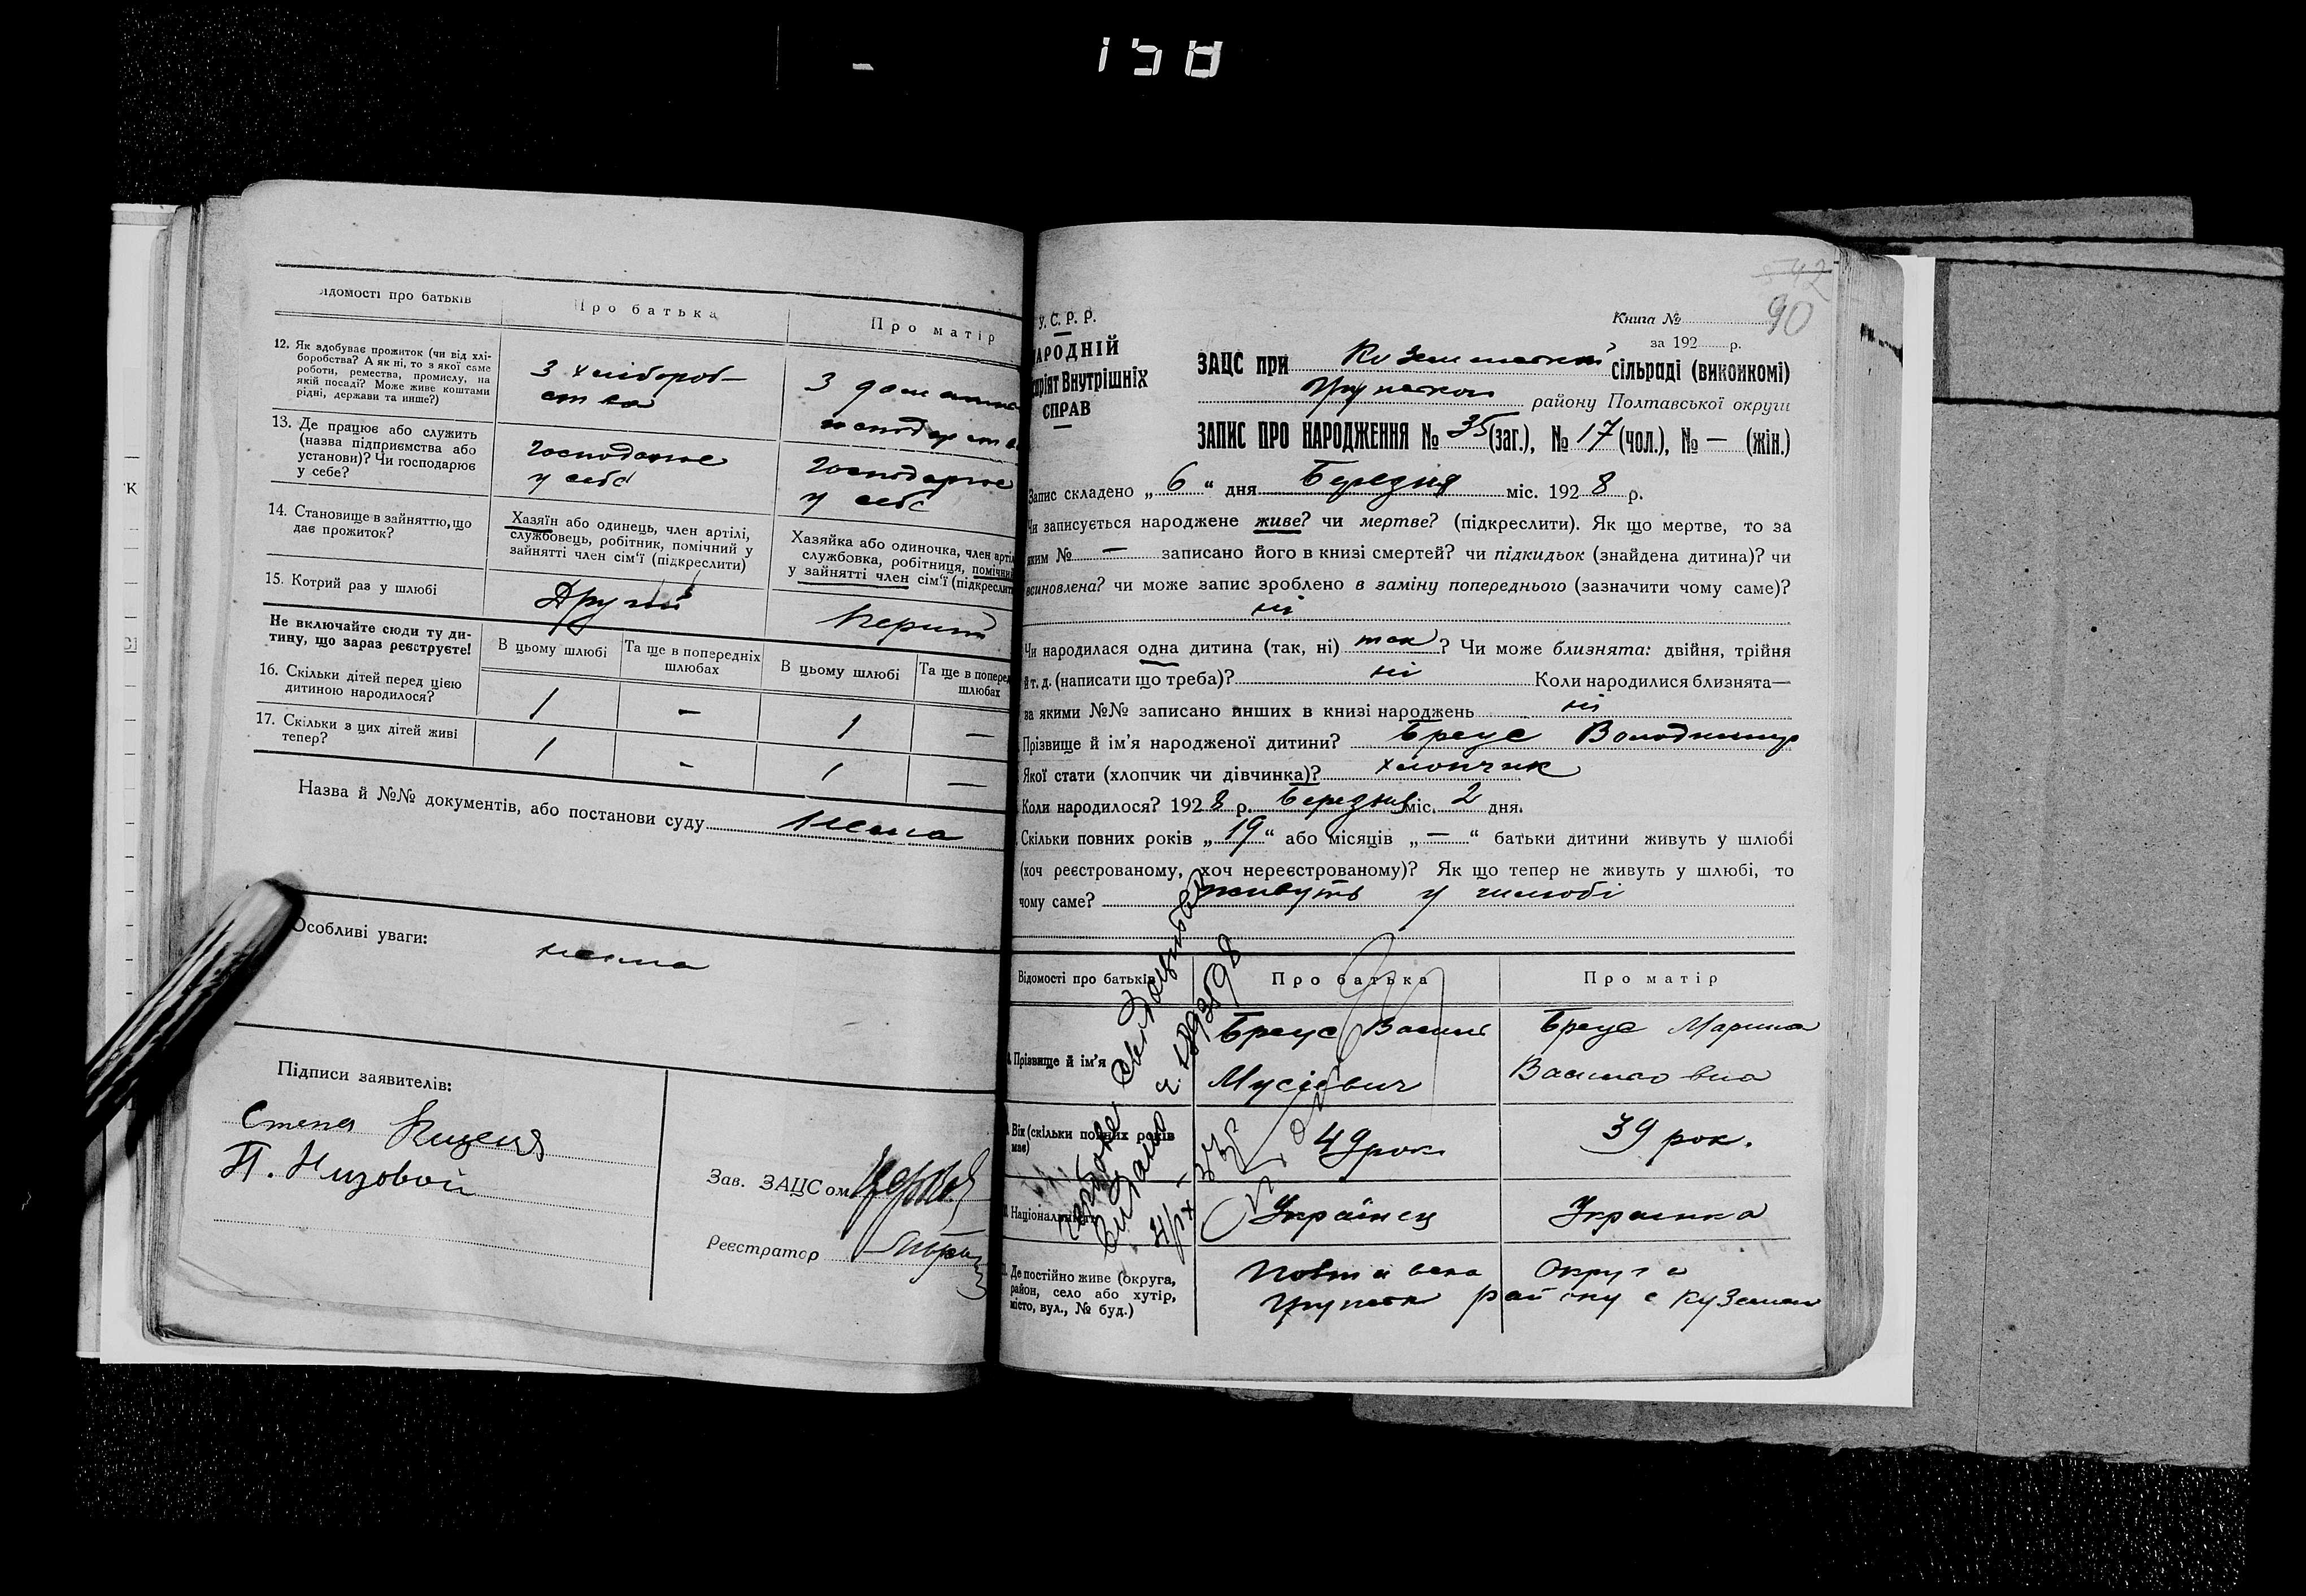 158
Відомості про батьків
Про батька
Про матір
12. Як здобуває прожиток (чи від хлі-
боробства? А як ні, то з якої саме
роботи, ремества, промислу, на
якій посаді? Може живе коштами
рідні, держави та инше?)
З хлібороб-
ства
З домашн
господарства
13. Де працює або служить
(назва підприємства або
установи)? Чи господарює
у себе?
Господарює
у себе
Господарює
у себе
14. Становище в зайняттю, що
дає прожиток?
Хазяїн або одинець, член артілі,
службовець, робітник, помічний у
зайнятті член сім'ї (підкреслити)
Хазяйка або одиночка, член артіл
службовка, робітниця, помічний
у зайнятті член сім'ї (підкреслит
15. Котрий раз у шлюбі
Другий
Перший
Не включайте сюди ту ди-
тину, що зараз реєструєте!
В цьому шлюбі
Та ще в попередніх
шлюбах
В цьому шлюбі
Та ще в поперед
шлюбах
16. Скільки дітей перед цією
дитиною народилося?
1 — 1 —
17. Скільки з цих дітей живі
тепер?
1 - 1 —
Назва й №№ документів, або постанови суду Нема
Особливі уваги: нема
Підписи заявителів:
Степа
П. Низовой
Зав. ЗАЦС ом
Реєстратор
542
90
У.С.Р.Р.
АРОДНІЙ
ріят Внутрішніх
СПРАВ
Книга №
за 192 р.
ЗАЦС при Куземинській сільраді (виконкомі)
Грунськом району Полтавської округи
ЗАПИС ПРО НАРОДЖЕННЯ № 35 (заг.), № 17 (чол.), № — (жін.)
Запис складено „ 6 “ дня Березня міс. 1928 р.
Чи записується народжене живе? чи мертве? (підкреслити). Як що мертве, то за
яким № — записано його в книзі смертей? чи підкидьок (знайдена дитина)? чи
всиновлена? чи може запис зроблено в заміну попереднього (зазначити чому саме)?
ні
Чи народилася одна дитина (так, ні) так? Чи може близнята: двійня, трійня
й т. д. (написати що треба)? ні Коли народилися близнята—
за якими №№ записано инших в книзі народжень ні
Прізвище й ім'я народженої дитини? Бреус Володимир
Якої стати (хлопчик чи дівчинка)? хлопчик
Коли народилося? 1928 р. Березня міс. 2 дня.
Скільки повних років „19“ або місяців „—“ батьки дитини живуть у шлюбі
(хоч реєстрованому, хоч нереєстрованому)? Як що тепер не живуть у шлюбі, то
чому саме? живуть у шлюбі
Відомості про батьків
Про батька
Про матір
Прізвище й ім'я
Бреус Василь
Мусієвич
Бреус Марина
Василовна
Вік (скільки повних років
має)
49 рок
39 рок.
Національність
Українец
Украінка
Де постійно живе (округа,
район, село або хутір,
місто, вул., № буд.)
Полтавска Округа
Грунськ району с Куземин